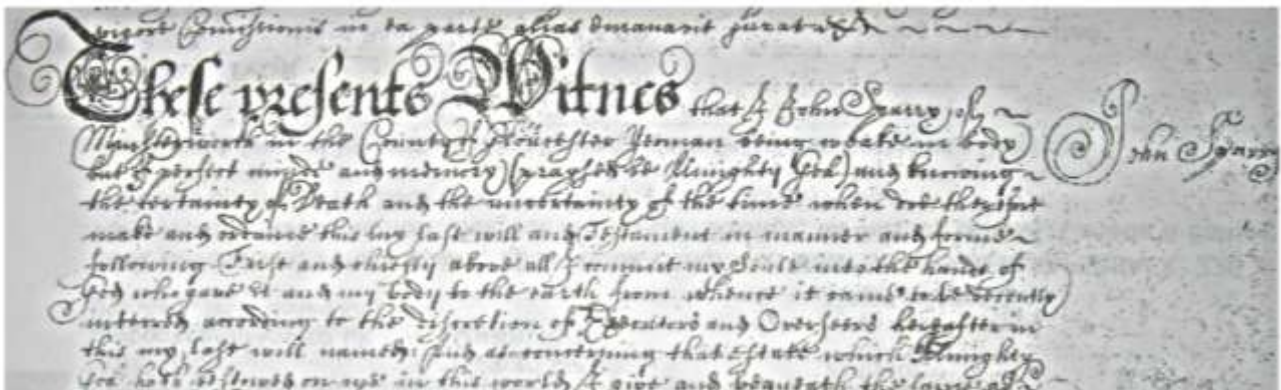 in ea parte alias emanavit jurat
These presents Witnes that I John Sparry of
in the County of Gloucester Yeoman being weake in body
but of perfect minde and memory (praysed be Almighty God) and knowing
the certainty of Death and the uncertainty of the time when doe therefore
make and ordaine this my last will and Testament in manner and forme
following First and chiefly above all I commit my Soule into the hands of
God who gave it and my body to the earth from whence it came to be decently
interred according to the discretion of Executors and Overseers hereafter in
this my last will named. And as concerning that estate which Almighty
God hath bestowed on me in this world I give and bequeath the same as
John Sparry